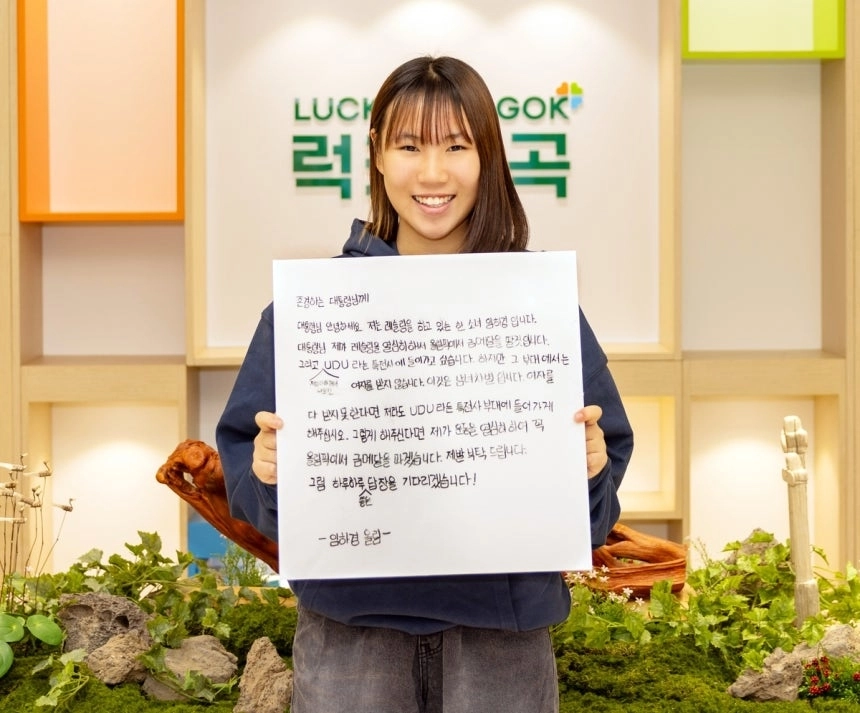 LUCK GOK
럭 곡
존경하는 대통령님께!
대통령님 안녕하세요. 저는 레슬링을 하고 있는 한 소녀 임하경 입니다.
대통령님 제가 레슬링을 열심히 해서 올림픽에서 금메달을 따겠습니다.
그리고 UDU 라는 특전사에 들어가고 싶습니다. 하지만 그 부대에서는
여자를 받지 않습니다. 이것은 남녀차별 입니다. 여자를
다 받지 못한다면 저라도 UDU 라는 특전사 부대에 들어가게
해주십시오. 그렇게 해주신다면 제가 운동을 열심히 하여 꼭
올림픽에서 금메달을 따겠습니다. 제발 부탁 드립니다.
그럼 하루하루 답장을 기다리겠습니다!
좋은
-임하경 올림-